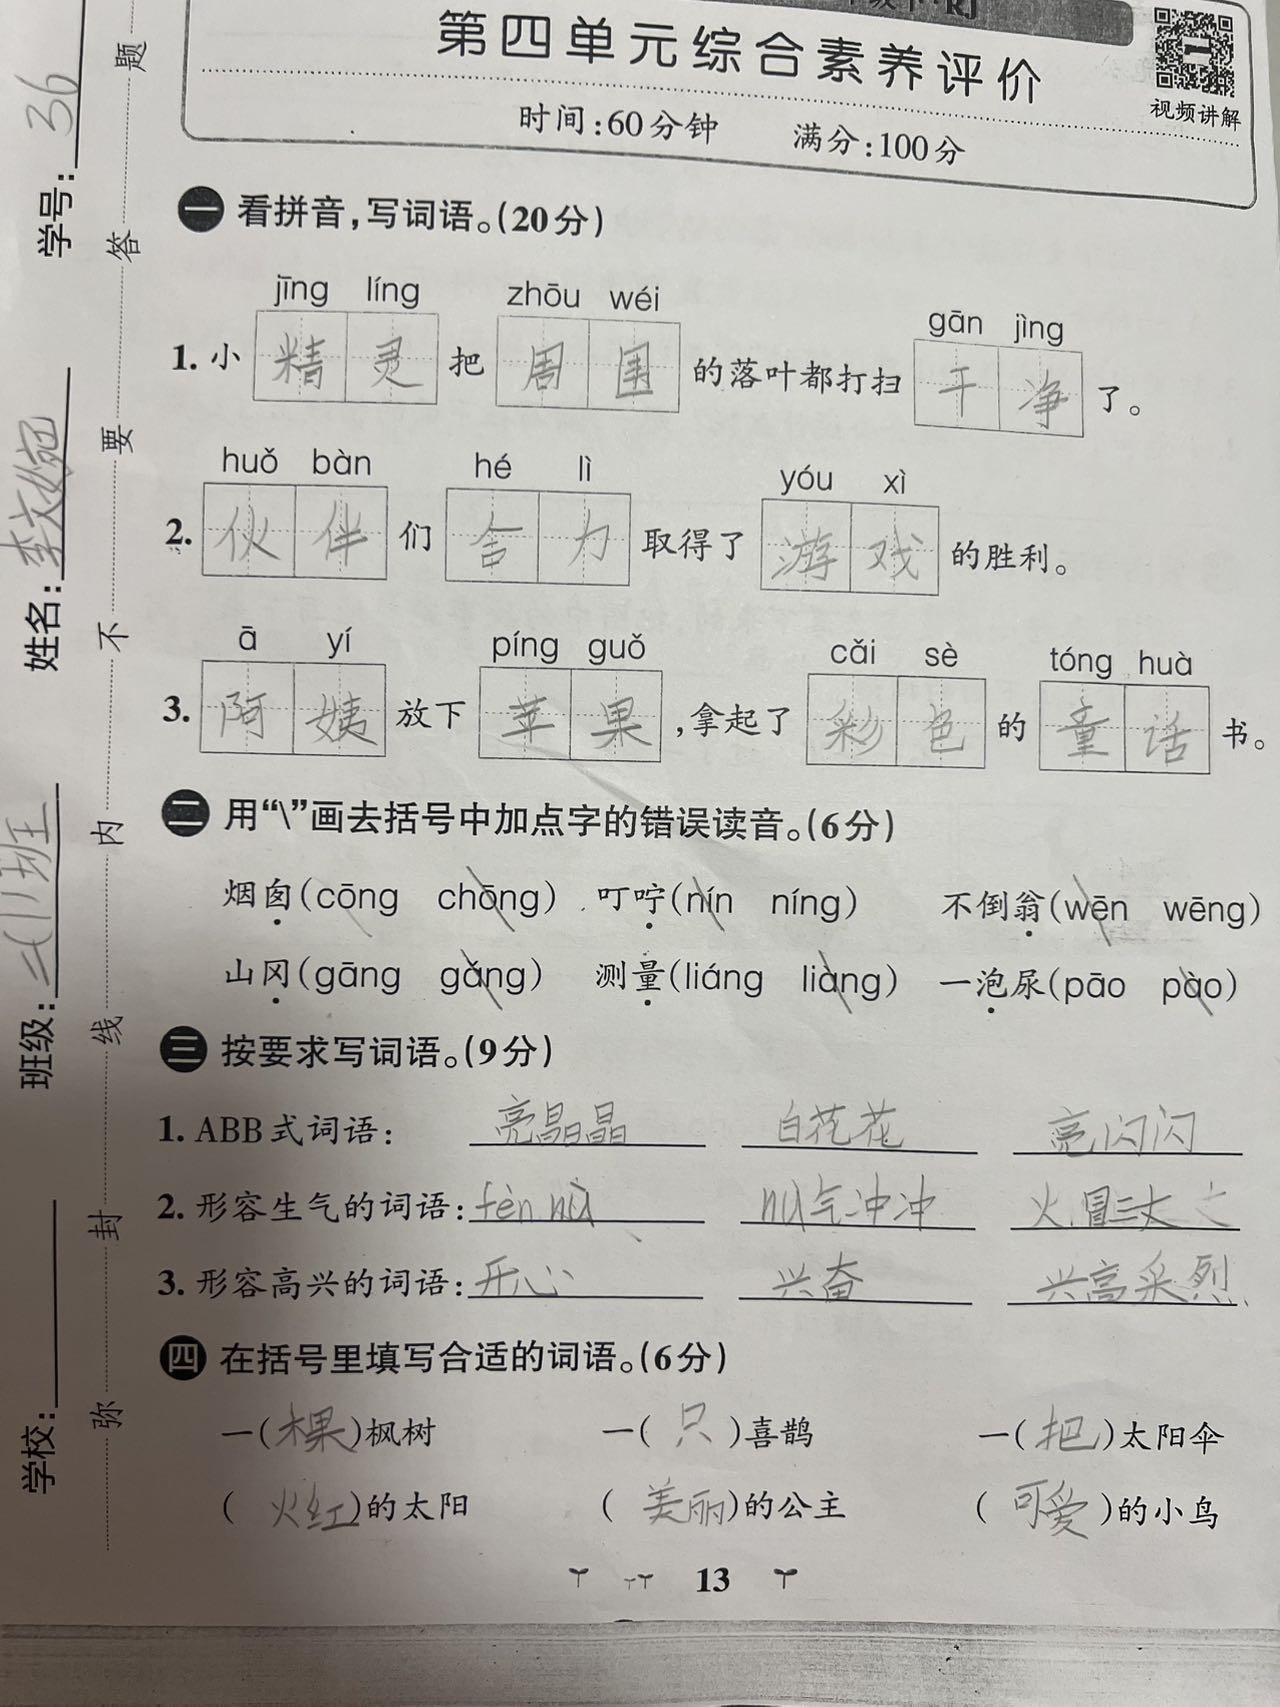 RJ
第四单元综合素养评价
时间:60分钟 满分:100分
视频讲解
一 看拼音,写词语。(20分)
jīng líng zhōu wéi gān jìng
1. 小 精灵 把 周围 的落叶都打扫 干净 了。
huǒ bàn hé lì yóu xì
2. 伙伴 们 合力 取得了 游戏 的胜利。
ā yí píng guǒ cǎi sè tóng huà
3. 阿姨 放下 苹果 ,拿起了 彩色 的 童话 书。
二 用“\”画去括号中加点字的错误读音。(6分)
烟囱(cōng chōng) 叮咛(nín níng) 不倒翁(wēn wēng)
山冈(gāng gǎng) 测量(liáng liàng) 一泡尿(pāo pào)
三 按要求写词语。(9分)
1. ABB式词语: 亮晶晶 白花花 亮闪闪
2. 形容生气的词语: fèn nù nù气冲冲 火冒三丈
3. 形容高兴的词语: 开心 兴奋 兴高采烈
四 在括号里填写合适的词语。(6分)
一(棵)枫树 一(只)喜鹊 一(把)太阳伞
(火红)的太阳 (美丽)的公主 (可爱)的小鸟
13
学校: 班级: 二(1)班 姓名: 李文婉 学号: 36
弥 封 线 内 不 要 答 题